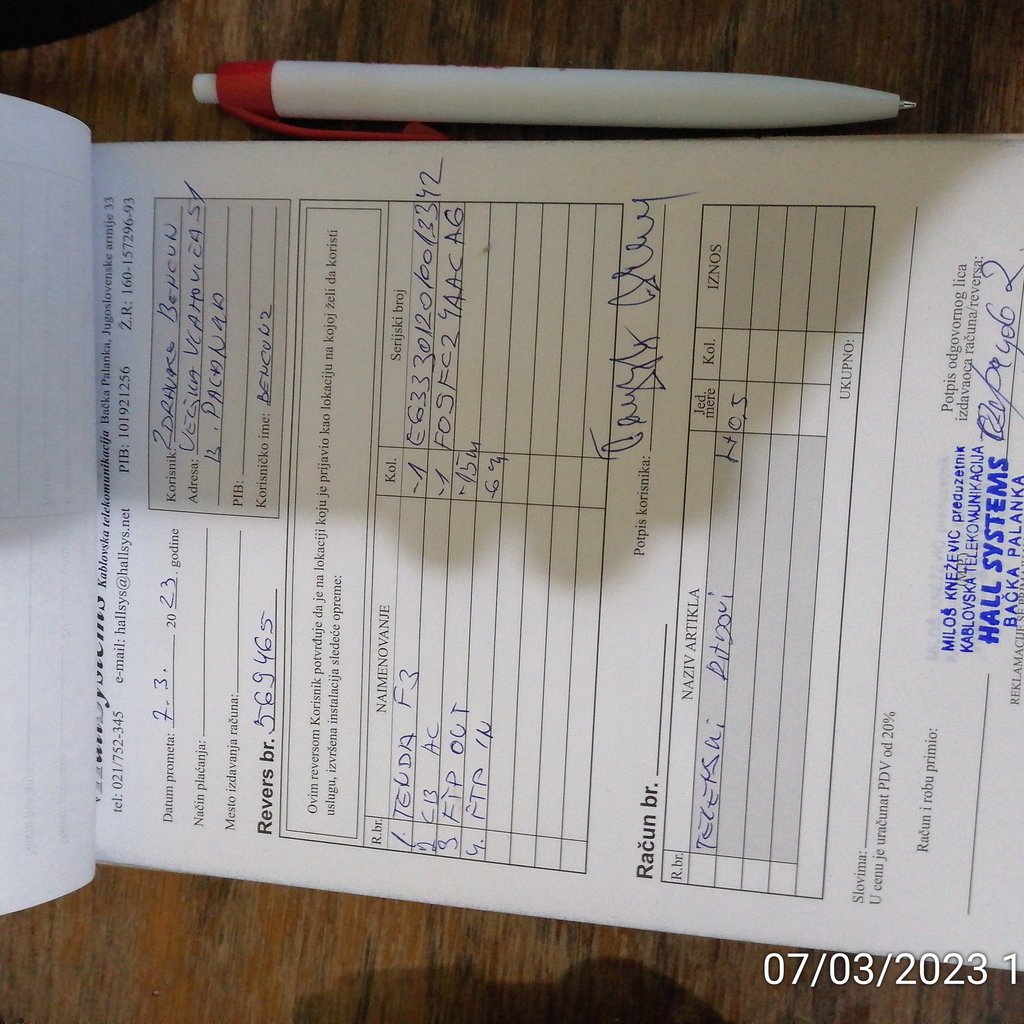 Kablovska telekomunikacija Bačka Palanka, Jugoslovenske armije 33
tel: 021/752-345 e-mail: hallsys@hallsys.net PIB: 101921256 Ž.R: 160-157296-93
Datum prometa: 7-3. 2023. godine
Način plaćanja:
Mesto izdavanja računa:
Revers br. 569465
Korisnik: ZDRAVKO
Adresa: 51
B. PALANKA
PIB:
Korisničko ime:
Ovim reversom Korisnik potvrđuje da je na lokaciji koju je prijavio kao lokaciju na kojoj želi da koristi
uslugu, izvršena instalacija sledeće opreme:
R.br. NAIMENOVANJE Kol. Serijski broj
1. TENDA F3 -1 E6333012010013342
2 LB AC -1 F09FC24AACAG
3 FTP OUT -15m
4. FTP IN -6m
Potpis korisnika:
Račun br.
R.br. NAZIV ARTIKLA Jed. mere Kol. IZNOS
UKUPNO:
Slovima:
U cenu je uračunat PDV od 20%
Račun i robu primio:
Potpis odgovornog lica
izdavaoca računa/reversa:
MILOŠ KNEŽEVIĆ preduzetnik
KABLOVSKA TELEKOMUNIKACIJA
HALL SYSTEMS
BAČKA PALANKA
07/03/2023 1